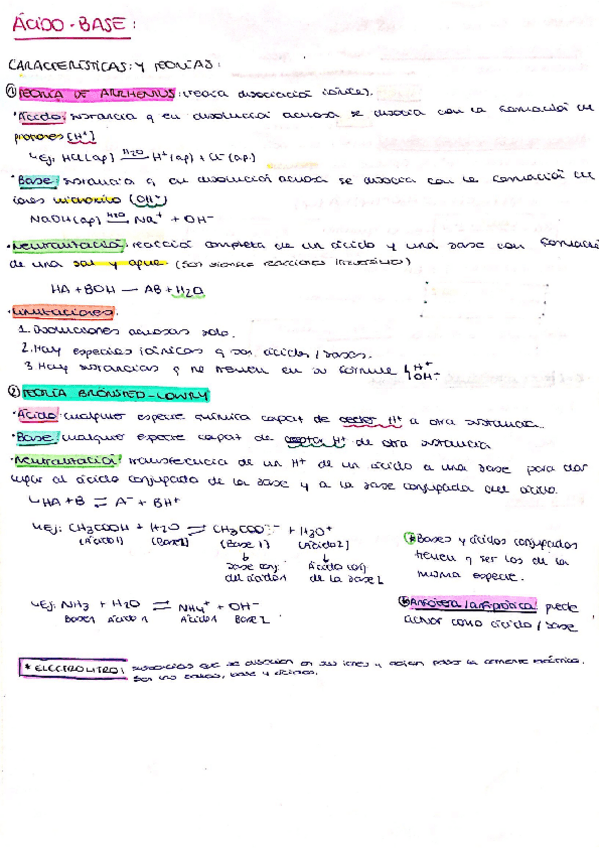 ÁCIDO-BASE:
CARACTERÍSTICAS: Y TEORÍAS:
① TEORÍA DE ARRHENIUS: teoría disociación iónica.
· Ácido: sustancia q en disolución acuosa se disocia con la formación de
protones [H⁺]
↳ Ej: HCl(aq) —H₂O→ H⁺(aq) + Cl⁻(aq)
· Base: sustancia q en disolución acuosa se disocia con la formación de
iones hidroxilo (OH⁻)
NaOH(aq) —H₂O→ Na⁺ + OH⁻
· Neutralización: reacción completa de un ácido y una base con formación
de una sal y agua (son siempre reacciones irreversibles)
HA + BOH — AB + H₂O
· Limitaciones.
1. Disoluciones acuosas solo.
2. Hay especies iónicas q son ácidos/bases.
3. Hay sustancias q no tienen en su fórmula H⁺ OH⁻
② TEORÍA BRÖNSTED-LOWRY
· Ácido: cualquier especie química capaz de ceder H⁺ a otra sustancia.
· Base: cualquier especie capaz de captar H⁺ de otra sustancia
· Neutralización: transferencia de un H⁺ de un ácido a una base para dar
lugar al ácido conjugado de la base y a la base conjugada del ácido.
↳ HA + B ⇌ A⁻ + BH⁺
↳ Ej: CH₃COOH + H₂O ⇌ CH₃COO⁻ + H₃O⁺
(Ácido 1) (Base 2) (Base 1) (Ácido 2)
↓ ↓
Base conj. Ácido conj
del ácido 1 de la base 2
* Bases y ácidos conjugados
tienen q ser los de la
misma especie.
↳ Ej: NH₃ + H₂O ⇌ NH₄⁺ + OH⁻
Base 1 Ácido 2 Ácido 1 Base 2
Anfótera/anfiprótica puede
actuar como ácido/base
* ELECTROLITRO: sustancias que se disocian en sus iones y dejan pasar la corriente eléctrica.
Son base y ácidos.